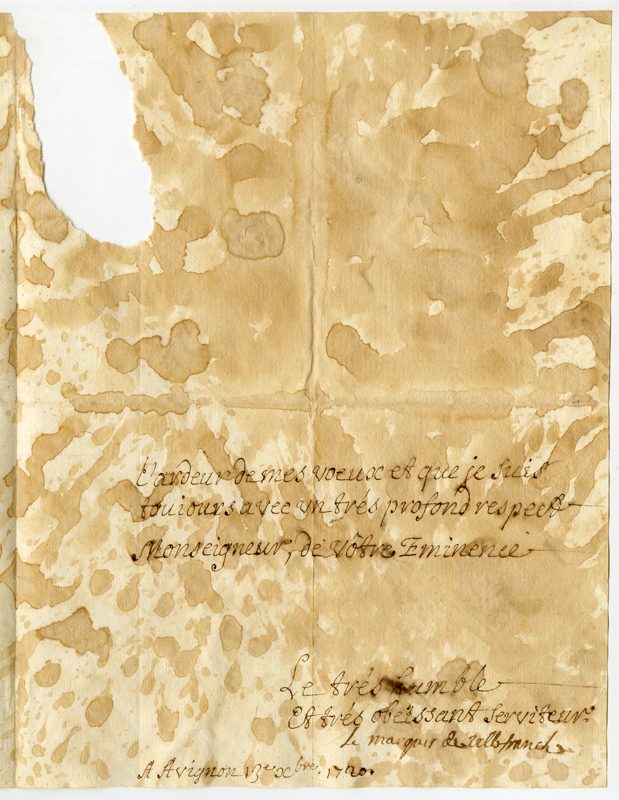 l'ardeur de mes voeux et que je suis
toujours avec vn trés profond respect
Monseigneur, de vôtre Eminence
Le trés humble
Et trés obeissant serviteur.
le marquis de villefranche
A Avignon 13e xbre. 1720.